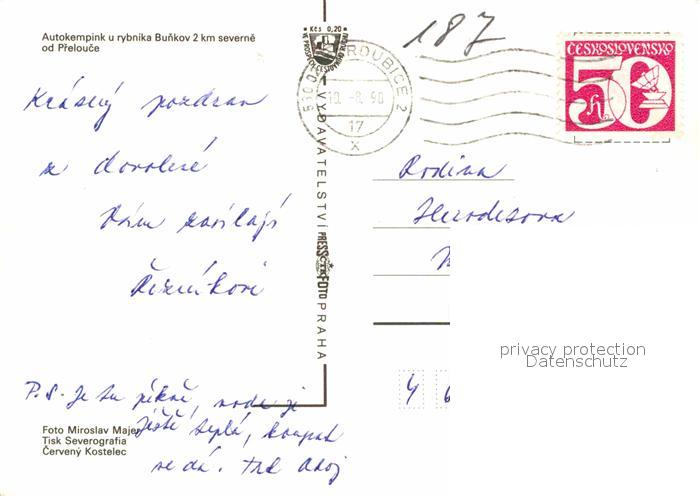 Autokempink u rybníka Buňkov 2 km severně
od Přelouče
Krásný pozdrav
z dovolené
Vám zasílají
Řezníkovi
P.S. Je tu pěkně, voda je
ještě teplá, koupat
se dá. Tak Ahoj
Foto Miroslav Majer
Tisk Severografia
Červený Kostelec
Kčs 0,20
VYDAVATELSTVÍ PRESSFOTO PRAHA
PARDUBICE 2
10.-8.90
17
x
187
ČESKOSLOVENSKO
50
Rodina
4 6
privacy protection
Datenschutz